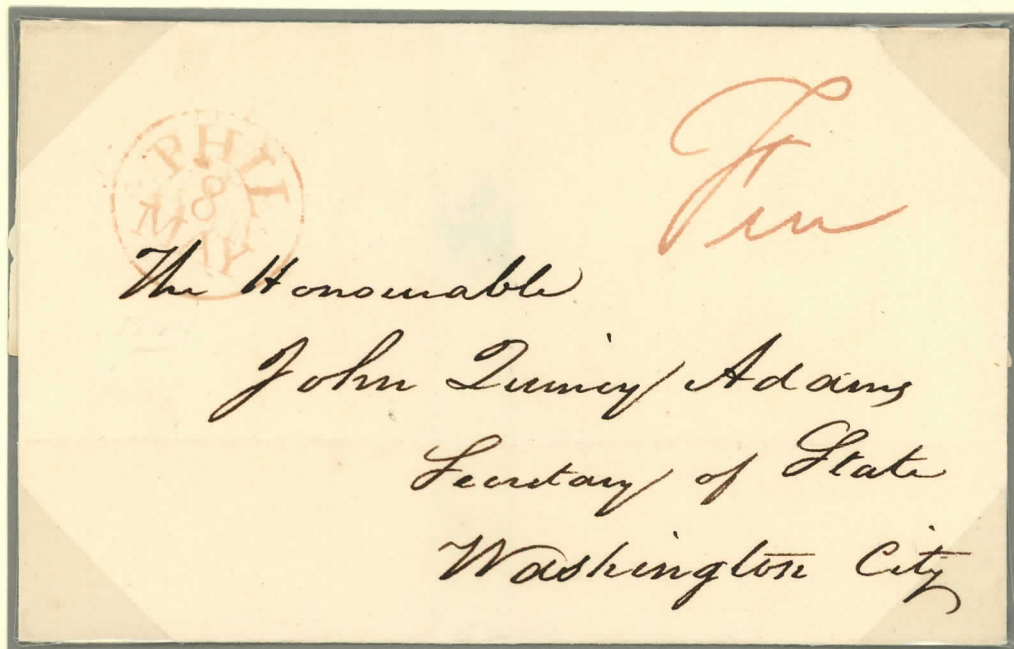 PHIL
8
MAY
Free
The Honourable
John Quincy Adams
Secretary of State
Washington City